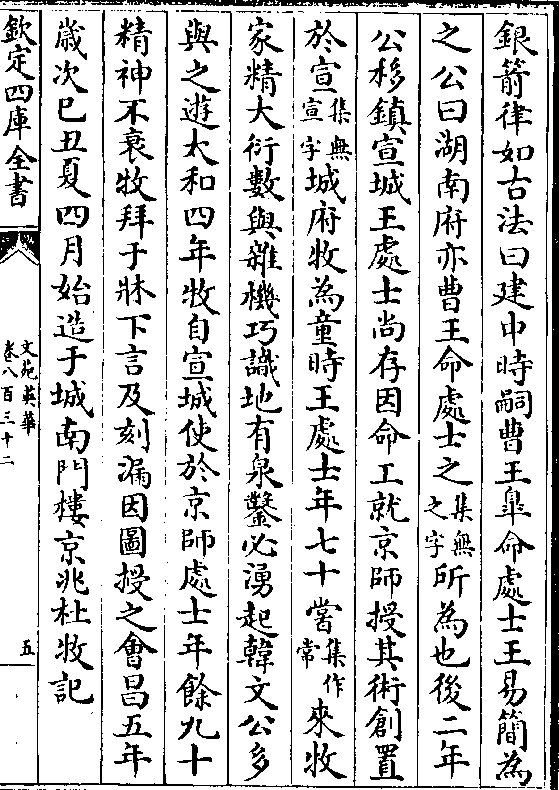 銀箭律如古法曰建中時嗣曹王臯命處士王易簡為
之公曰湖南府亦曹王命處士之集無之字所為也後二年
公移鎮宣城王處士尚存因命工就京師授其術創置
於宣集無宣字城府牧為童時王處士年七十嘗集作常來牧
家精大衍數與雜機巧識地有泉鑿必湧起韓文公多
與之遊太和四年牧自宣城使於京師處士年餘九十
精神不衰牧拜于牀下言及刻漏因圖授之會昌五年
歳次巳丑夏四月始造于城南門樓京兆杜牧記
欽定四庫全書
文苑英華
卷八百三十二
五